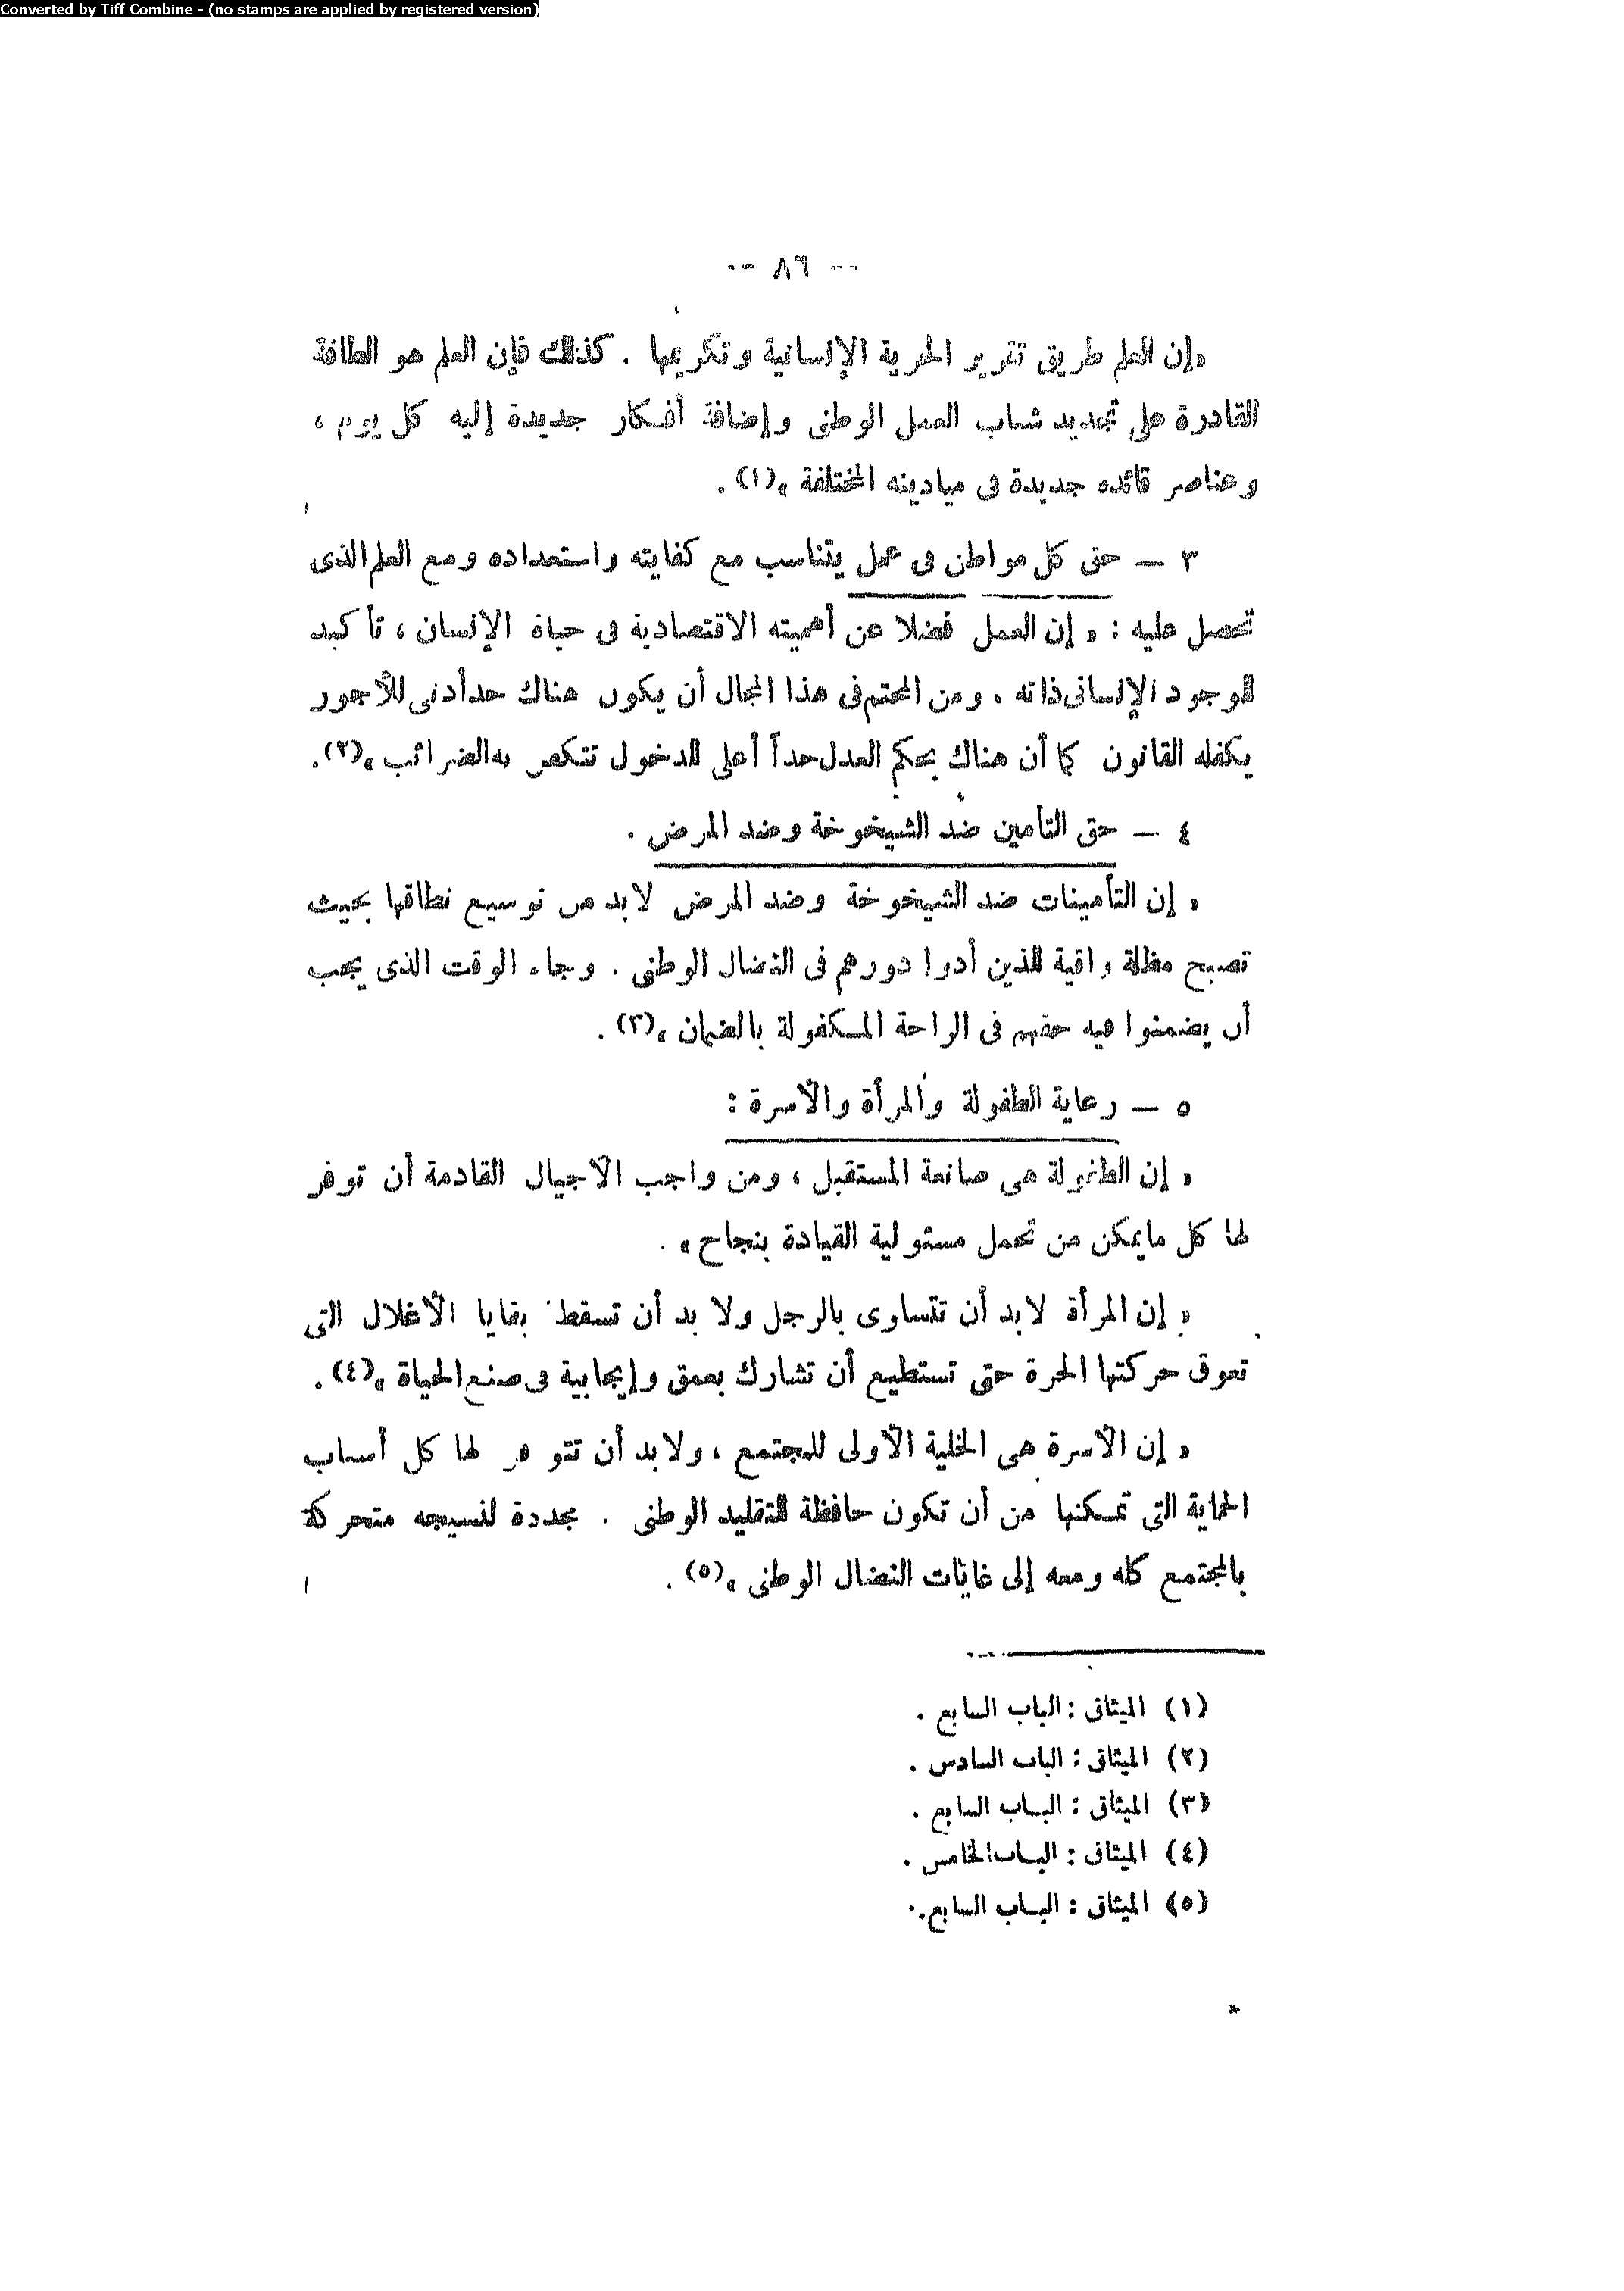 Converted by Tiff Combine - (no stamps are applied by registered version)
-- ٨٦ --
« إن العلم طريق تقرير الحرية الإنسانية وتكريمها . كذلك فإن العلم هو الطاقة
القادرة على تجديد شباب العمل الوطنى وإضافة أفكار جديدة إليه كل يوم ،
وعناصر قائده جديدة فى ميادينه المختلفة »(١) .
٣ — حق كل مواطن فى عمل يتناسب مع كفايته واستعداده ومع العلم الذى
تحصل عليه : « إن العمل فضلا عن أهميته الاقتصادية فى حياة الإنسان ، تأكيد
للوجود الإنسانى ذاته . ومن المحتم فى هذا المجال أن يكون هناك حد أدنى للأجور
يكفله القانون كما أن هناك بحكم العدل حداً أعلى للدخول تتكفل به الضرائب »(٢) .
٤ — حق التأمين ضد الشيخوخة وضد المرض .
« إن التأمينات ضد الشيخوخة وضد المرض لابد من توسيع نطاقها بحيث
تصبح مظلة واقية للذين أدوا دورهم فى النضال الوطنى . وجاء الوقت الذى يجب
أن يضمنوا فيه حقهم فى الراحة المكفولة بالضمان »(٣) .
٥ — رعاية الطفولة والمرأة والأسرة :
« إن الطفولة هى صانعة المستقبل ، ومن واجب الأجيال القادمة أن توفر
لها كل مايمكن من تحمل مسئولية القيادة بنجاح » .
« إن المرأة لابد أن تتساوى بالرجل ولا بد أن تسقط بقايا الأغلال التى
تعوق حركتها الحرة حتى تستطيع أن تشارك بعمق وإيجابية فى صنع الحياة »(٤) .
« إن الأسرة هى الخلية الأولى للمجتمع ، ولابد أن تتوفر لها كل أسباب
الحماية التى تمكنها من أن تكون حافظة للتقليد الوطنى . مجددة لنسيجه متحركة
بالمجتمع كله ومعه إلى غايات النضال الوطنى »(٥) .
(١) الميثاق : الباب السابع .
(٢) الميثاق : الباب السادس .
(٣) الميثاق : الباب السابع .
(٤) الميثاق : الباب الخامس .
(٥) الميثاق : الباب السابع .